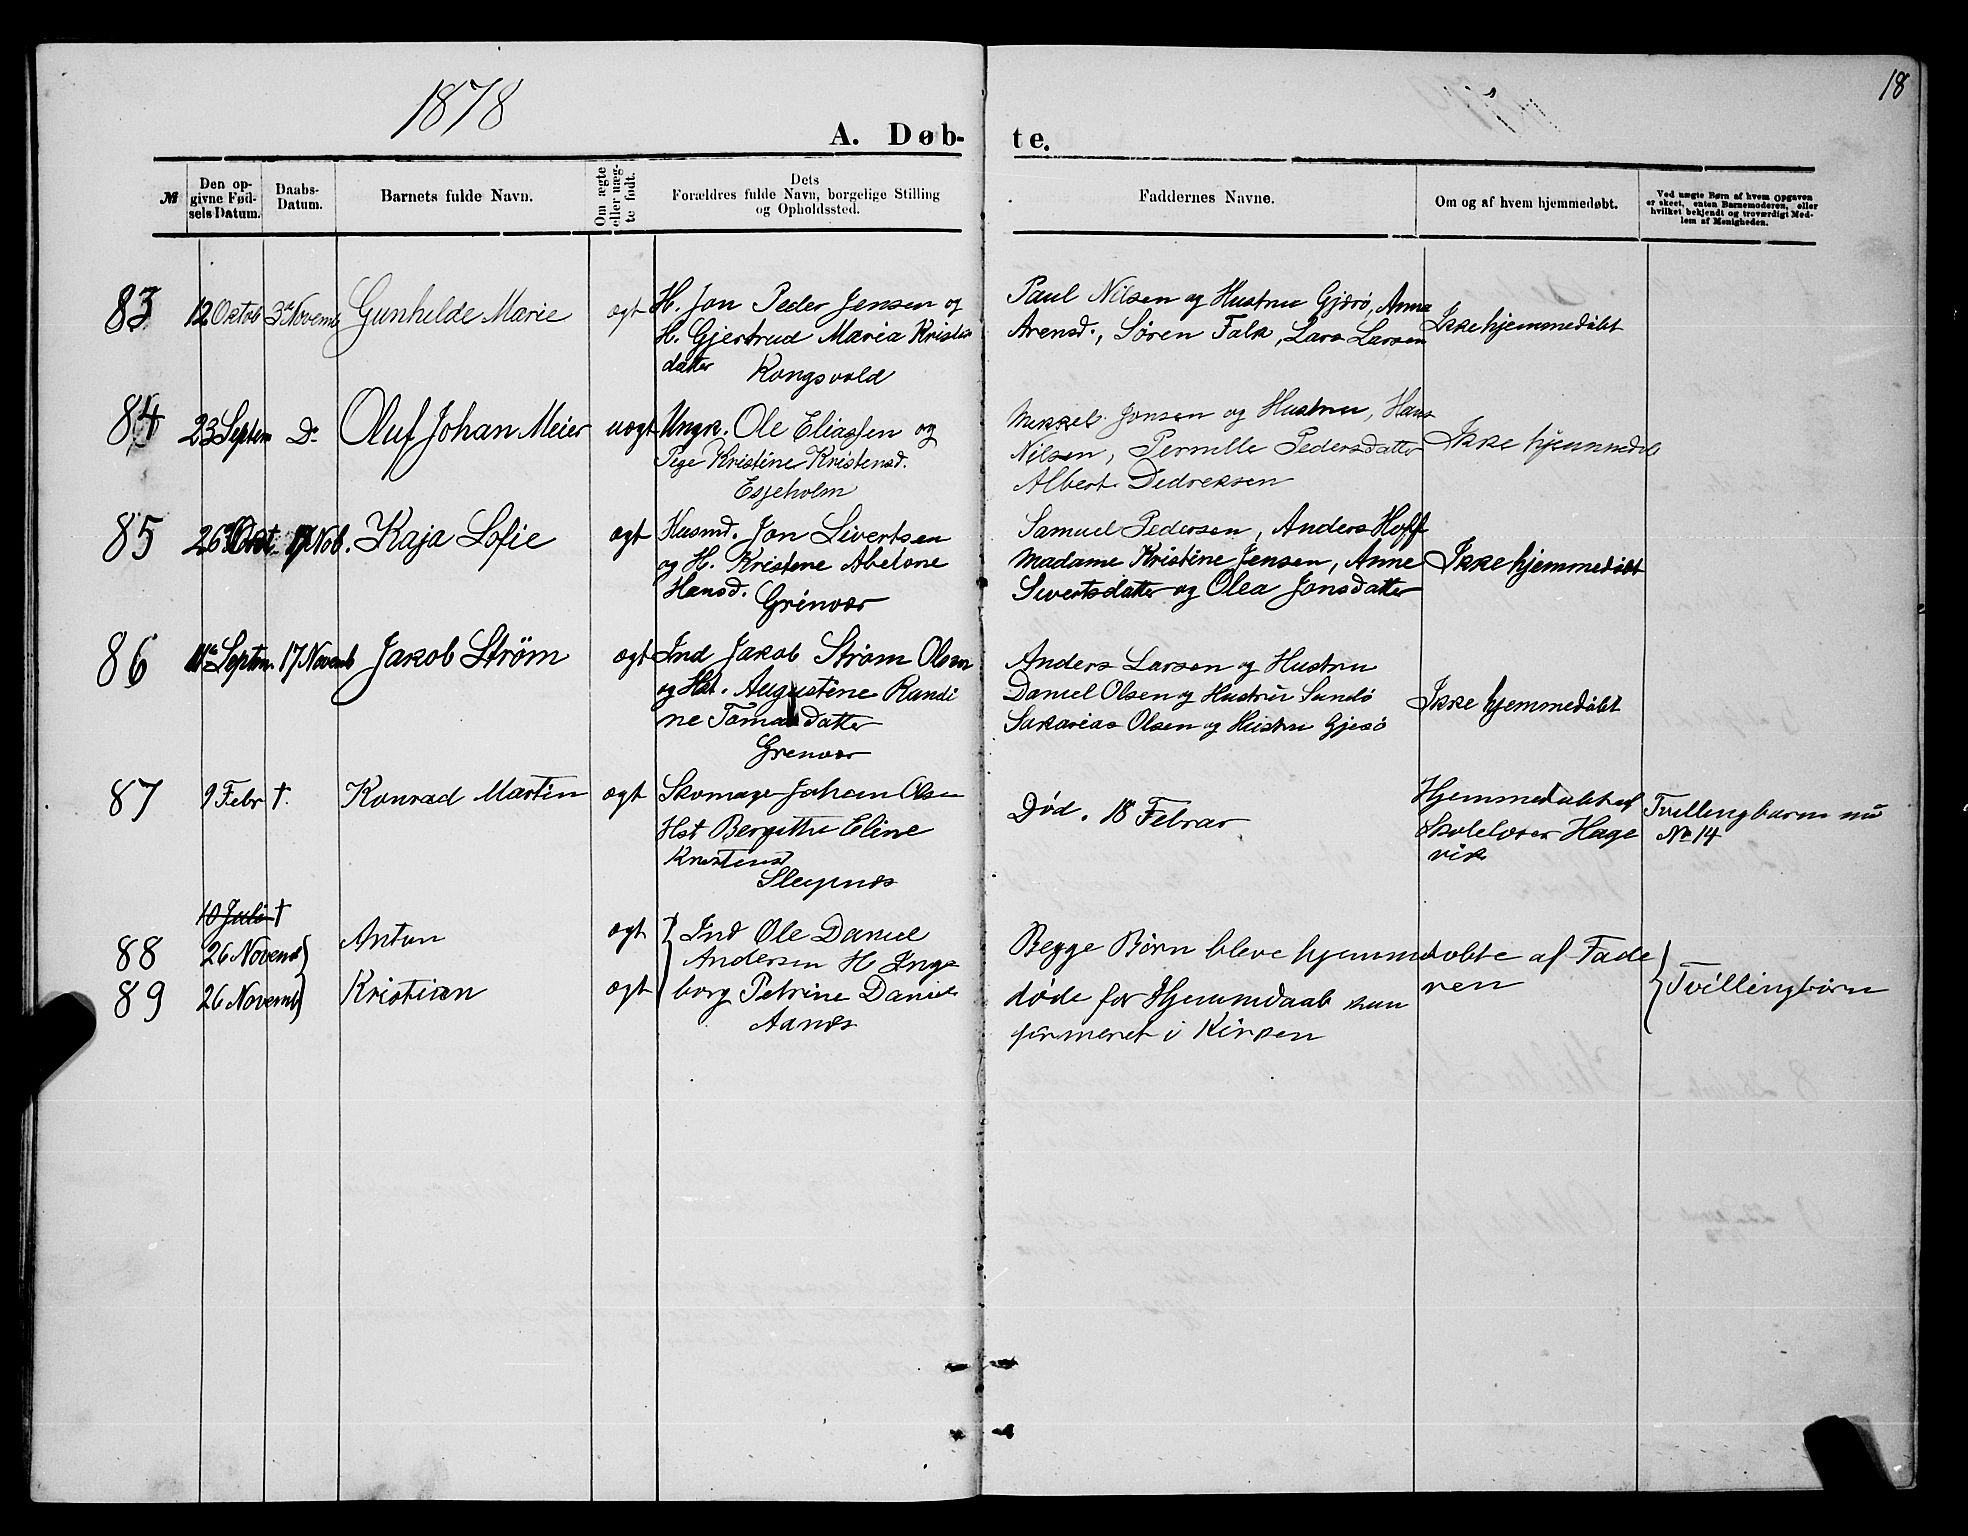 18
1878
A. Døb-
te.
№
Den op-
givne Fød-
sels Datum.
Daabs-
Datum.
Barnets fulde Navn.
Om ægte
eller uæg-
te født.
Dets
Forældres fulde Navn, borgelige Stilling
og Opholdssted.
Faddernes Navne.
Om og af hvem hjemmedøbt.
Ved uægte Børn af hvem Opgaven
er skeet, enten Barnemoderen, eller
hvilket bekjendt og troværdigt Med-
lem af Menigheden.
83
12 Oktob
3die Novemb
Gunhilde Marie
ægt
H. Jon Peder Jensen og
H. Gjertrud Maria Kristen
datter Kongsvold
Paul Nilsen og Hustru Gjærø, Anna
Arensd., Søren Falk, Lars Larsen
Ikke hjemmedøbt
84
23 Septem
Do
Oluf Johan Meier
uægt
Ungk. Ole Eliassen og
Pige Kristine Kristensd.
Esjeholm
Mikkel Jonsen og Hustru, Hans
Nilsen, Pernille Pedersdatter
Albert Didreksen
Ikke hjemmedøb
85
26 Okt
17 Nob.
Kaja Sofie
ægt
Husmd. Jon Sivertsen
og H. Kristine Abelone
Hansd. Grinvær
Samuel Pedersen, Anders Hoff
Madame Kristine Jensen, Anne
Sivertsdatter og Olea Jonsdatter
Ikke hjemmedøbt
86
Septem.
17 Novemb
Jakob Strøm
ægt
Ind Jakob Strøm Olsen
og Hst. Augustine Randi
ne Tomasdatter
Grenvær
Anders Larsen og Hustru
Daniel Olsen og Hustru Sundø
Sakarias Olsen og Hustru Gjesø
Ikke hjemmedøbt
87
9 Febr
†.
Konrad Martin
ægt
Skomager Johan Olsen
Hst Bergitte Eline
Kristensd
Sleipnes
Død. 18 Februar
Hjemmedøbt af
Skolelærer Hage
vik
Tvillingbarn
No 14
10 Juli †
88
26 Novemb
Anton
ægt
Ind Ole Daniel
Andersen H Inge
89
26 Novemb
Kristian
ægt
borg Petrine Daniels
Aanes
Begge Børn bleve hjemmedøbte af Fade
ren
døde før Hjemmdaab kun
firmeret i Kirken
Tvillingbørn